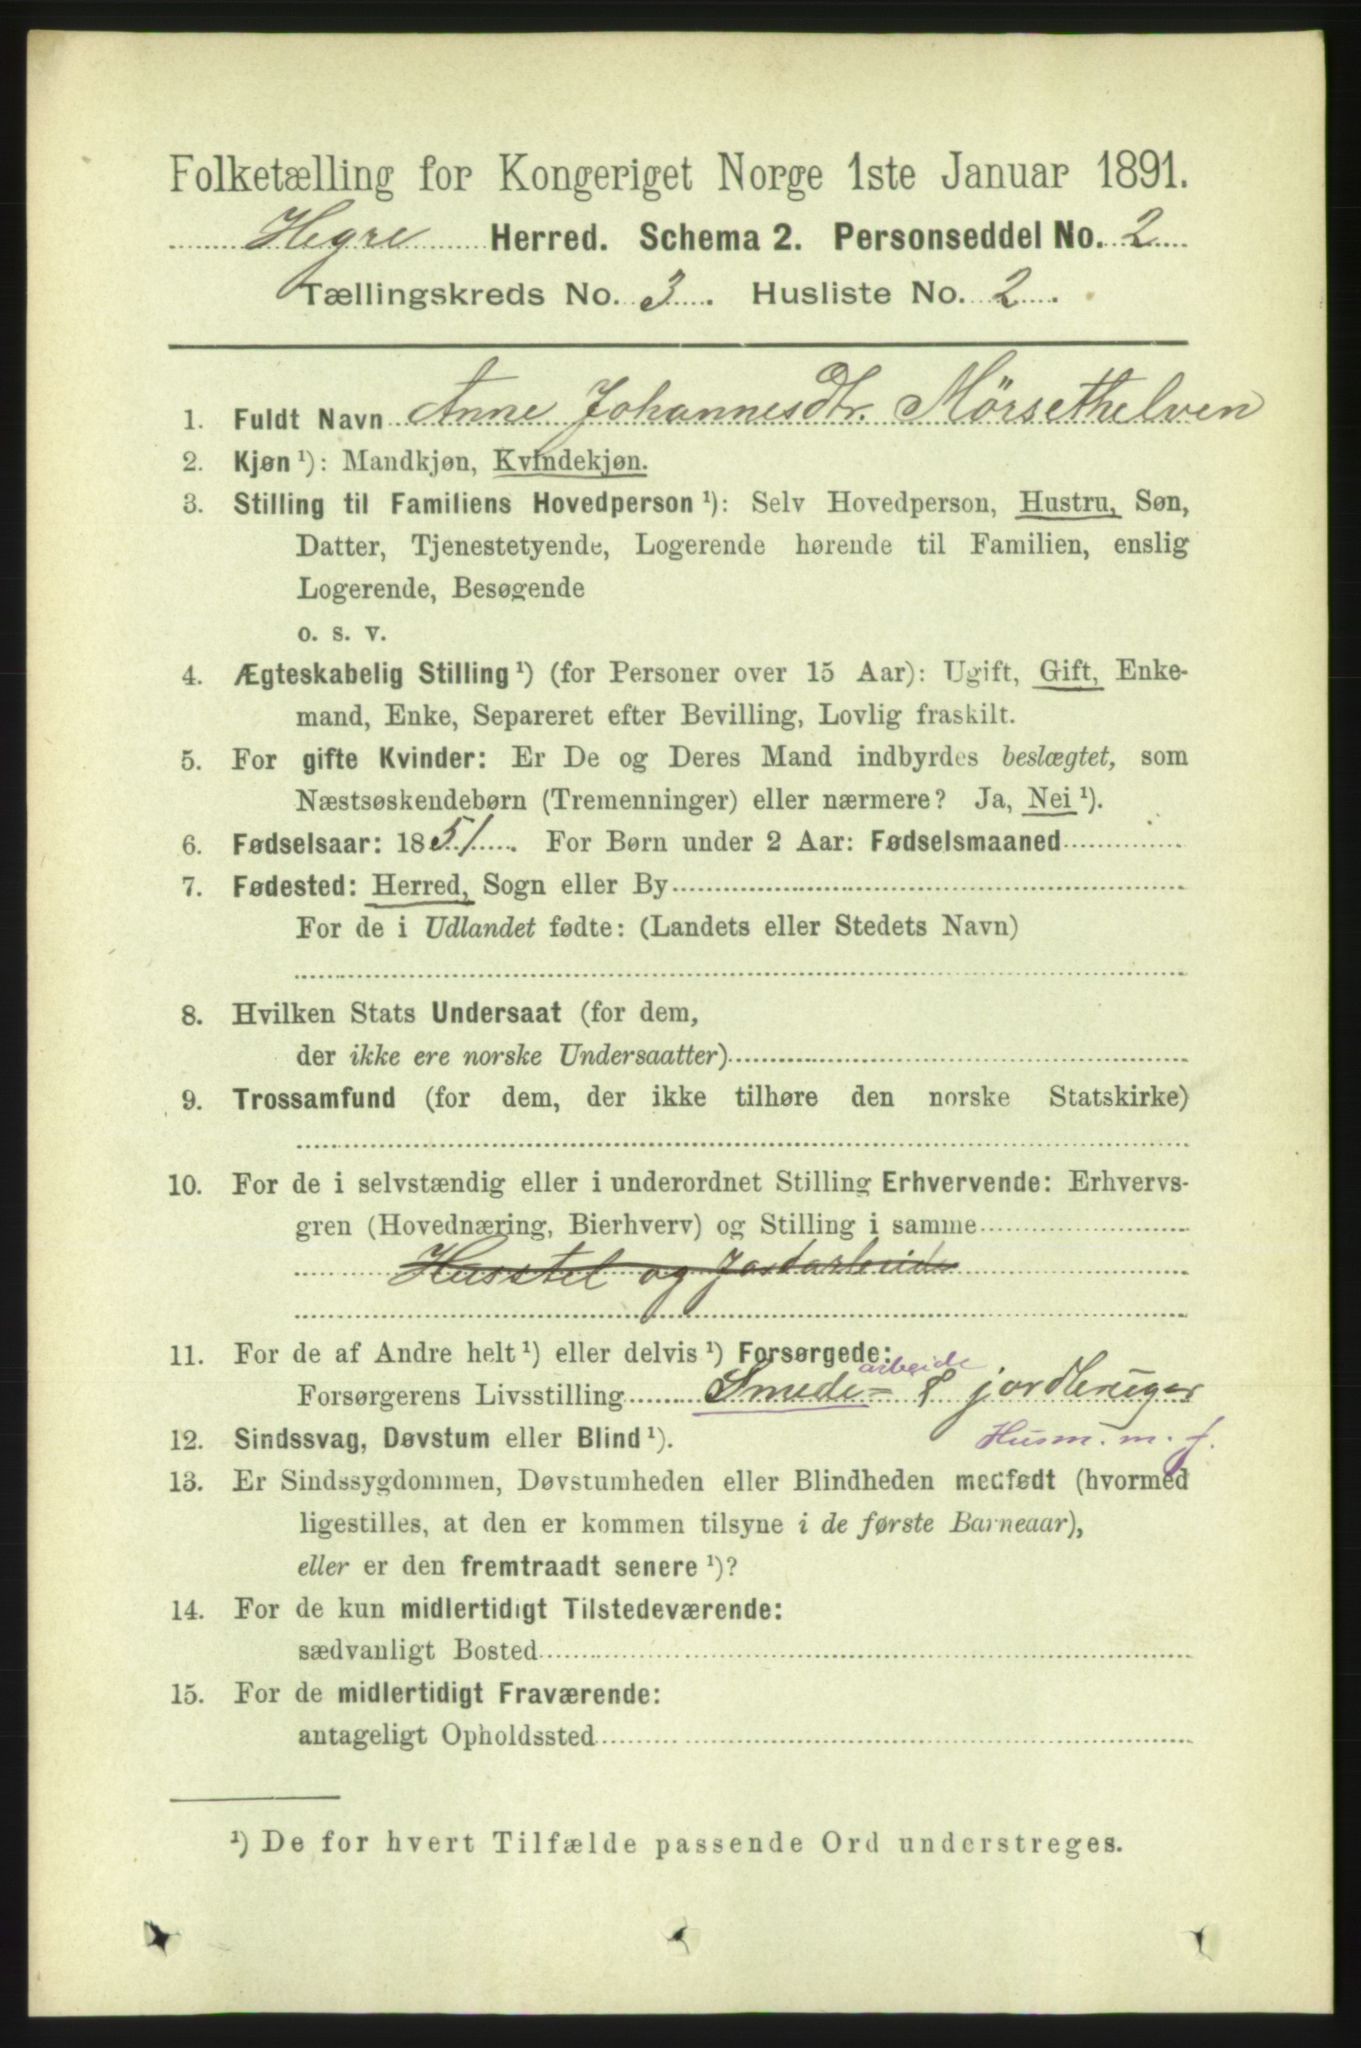 Folketælling for Kongeriget Norge 1ste Januar 1891.
Hegre Herred. Schema 2. Personseddel No. 2
Tællingskreds No. 3. Husliste No. 2.
1. Fuldt Navn Anne Johannesdtr. Mörsethelven
2. Kjøn ¹): Mandkjøn, Kvindekjøn.
3. Stilling til Familiens Hovedperson ¹): Selv Hovedperson, Hustru, Søn,
Datter, Tjenestetyende, Logerende hørende til Familien, enslig
Logerende, Besøgende
o. s. v.
4. Ægteskabelig Stilling ¹) (for Personer over 15 Aar): Ugift, Gift, Enke-
mand, Enke, Separeret efter Bevilling, Lovlig fraskilt.
5. For gifte Kvinder: Er De og Deres Mand indbyrdes beslægtet, som
Næstsøskendebørn (Tremenninger) eller nærmere? Ja, Nei ¹).
6. Fødselsaar: 1851. For Børn under 2 Aar: Fødselsmaaned
7. Fødested: Herred, Sogn eller By
For de i Udlandet fødte: (Landets eller Stedets Navn)
8. Hvilken Stats Undersaat (for dem,
der ikke ere norske Undersaatter)
9. Trossamfund (for dem, der ikke tilhøre den norske Statskirke)
10. For de i selvstændig eller i underordnet Stilling Erhvervende: Erhvervs-
gren (Hovednæring, Bierhverv) og Stilling i samme
Husstel og Jordarbeide
11. For de af Andre helt ¹) eller delvis ¹) Forsørgede:
arbeide
Forsørgerens Livsstilling Smede= & jordbruger
12. Sindssvag, Døvstum eller Blind ¹). Husm. m. j.
13. Er Sindssygdommen, Døvstumheden eller Blindheden medfødt (hvormed
ligestilles, at den er kommen tilsyne i de første Barneaar),
eller er den fremtraadt senere ¹)?
14. For de kun midlertidigt Tilstedeværende:
sædvanligt Bosted
15. For de midlertidigt Fraværende:
antageligt Opholdssted
¹) De for hvert Tilfælde passende Ord understreges.